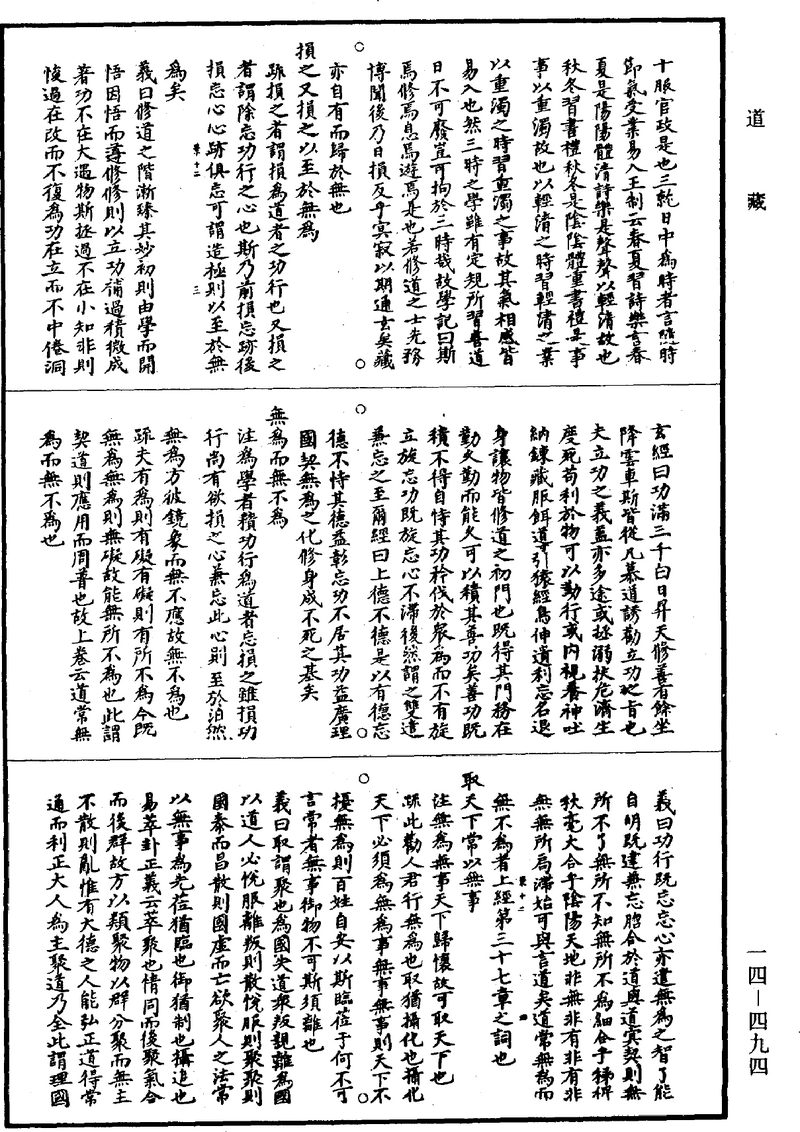 道藏
十服官政是也三就日中為時者言隨時
節氣受業易入王制云春夏習詩樂言春
夏是陽陽體清詩樂是聲聲以輕清故也
秋冬習書禮秋冬是陰陰體重書禮是事
事以重濁故也以輕清之時習輕清之業
以重濁之時習重濁之事故其氣相感皆
易入也然三時之學雖有定規所習善道
日不可廢豈可拘於三時哉故學記曰斯
焉修焉息焉遊焉是也若修道之士先務
博聞後乃日損反乎冥寂以期通玄矣藏
亦自有而歸於無也
損之又損之以至於無為
疏損之者謂損為道者之功行也又損之
者謂除忘功行之心也斯乃前損忘跡後
損忘心心跡俱忘可謂造極則以至於無
為矣
義曰修道之階漸臻其妙初則由學而開
悟因悟而遵修修則以立功補過積微成
著功不在大遇物斯拯過不在小知非則
悛過在改而不復為功在立而不中倦洞
玄經曰功滿三千白日昇天修善有餘坐
降雲車斯皆從凡慕道誘勸立功之旨也
夫立功之義蓋亦多途或拯溺扶危濟生
度死苟利於物可以勤行或內視養神吐
納鍊藏服餌導引猿經鳥伸遺利忘名退
身讓物皆修道之初門也既得其門務在
勤久勤而能久可以積其善功矣善功既
積不得自恃其功矜伐於眾為而不有旋
立旋忘功既旋忘心不滯後然謂之雙遣
兼忘之至爾經曰上德不德是以有德忘
德不恃其德益彰忘功不居其功益廣理
國契無為之化修身成不死之基矣
無為而無不為
注為學者積功行為道者忘損之雖損功
行尚有欲損之心兼忘此心則至於泊然
無為方彼鏡象而無不應故無不為也
疏夫有為則有礙有礙則有所不為今既
無為無為則無礙故能無所不為也此謂
契道則應用而周普也故上卷云道常無
為而無不為也
義曰功行既忘忘心亦遣無為之智了能
自明既達兼忘脗合於道與道冥契則無
所不了無所不知無所不為細合乎稊稗
秋毫大合乎陰陽天地非無非有非有非
無無所局滯始可與言道矣道常無為而
無不為者上經第三十七章之詞也
取天下常以無事
注無為無事天下歸懷故可取天下也
疏此勸人君行無為也取猶攝化也攝化
天下必須無為無事無事則天下不
擾無為則百姓自安以斯臨莅于何不可
言常者無事御物不可斯須離也
義曰取謂聚也為國失道眾叛親離為國
以道人必悅服離叛則散悅服則聚聚則
國泰而昌散則國虛而亡欲聚人之法常
以無事為先莅猶臨也御猶制也攝追也
易萃卦正義云萃聚也情同而後聚氣合
而後群故方以類聚物以群分聚而無主
不散則亂惟有大德之人能弘正道得常
通而利正大人為主聚道乃全此謂理國
一四—四九四